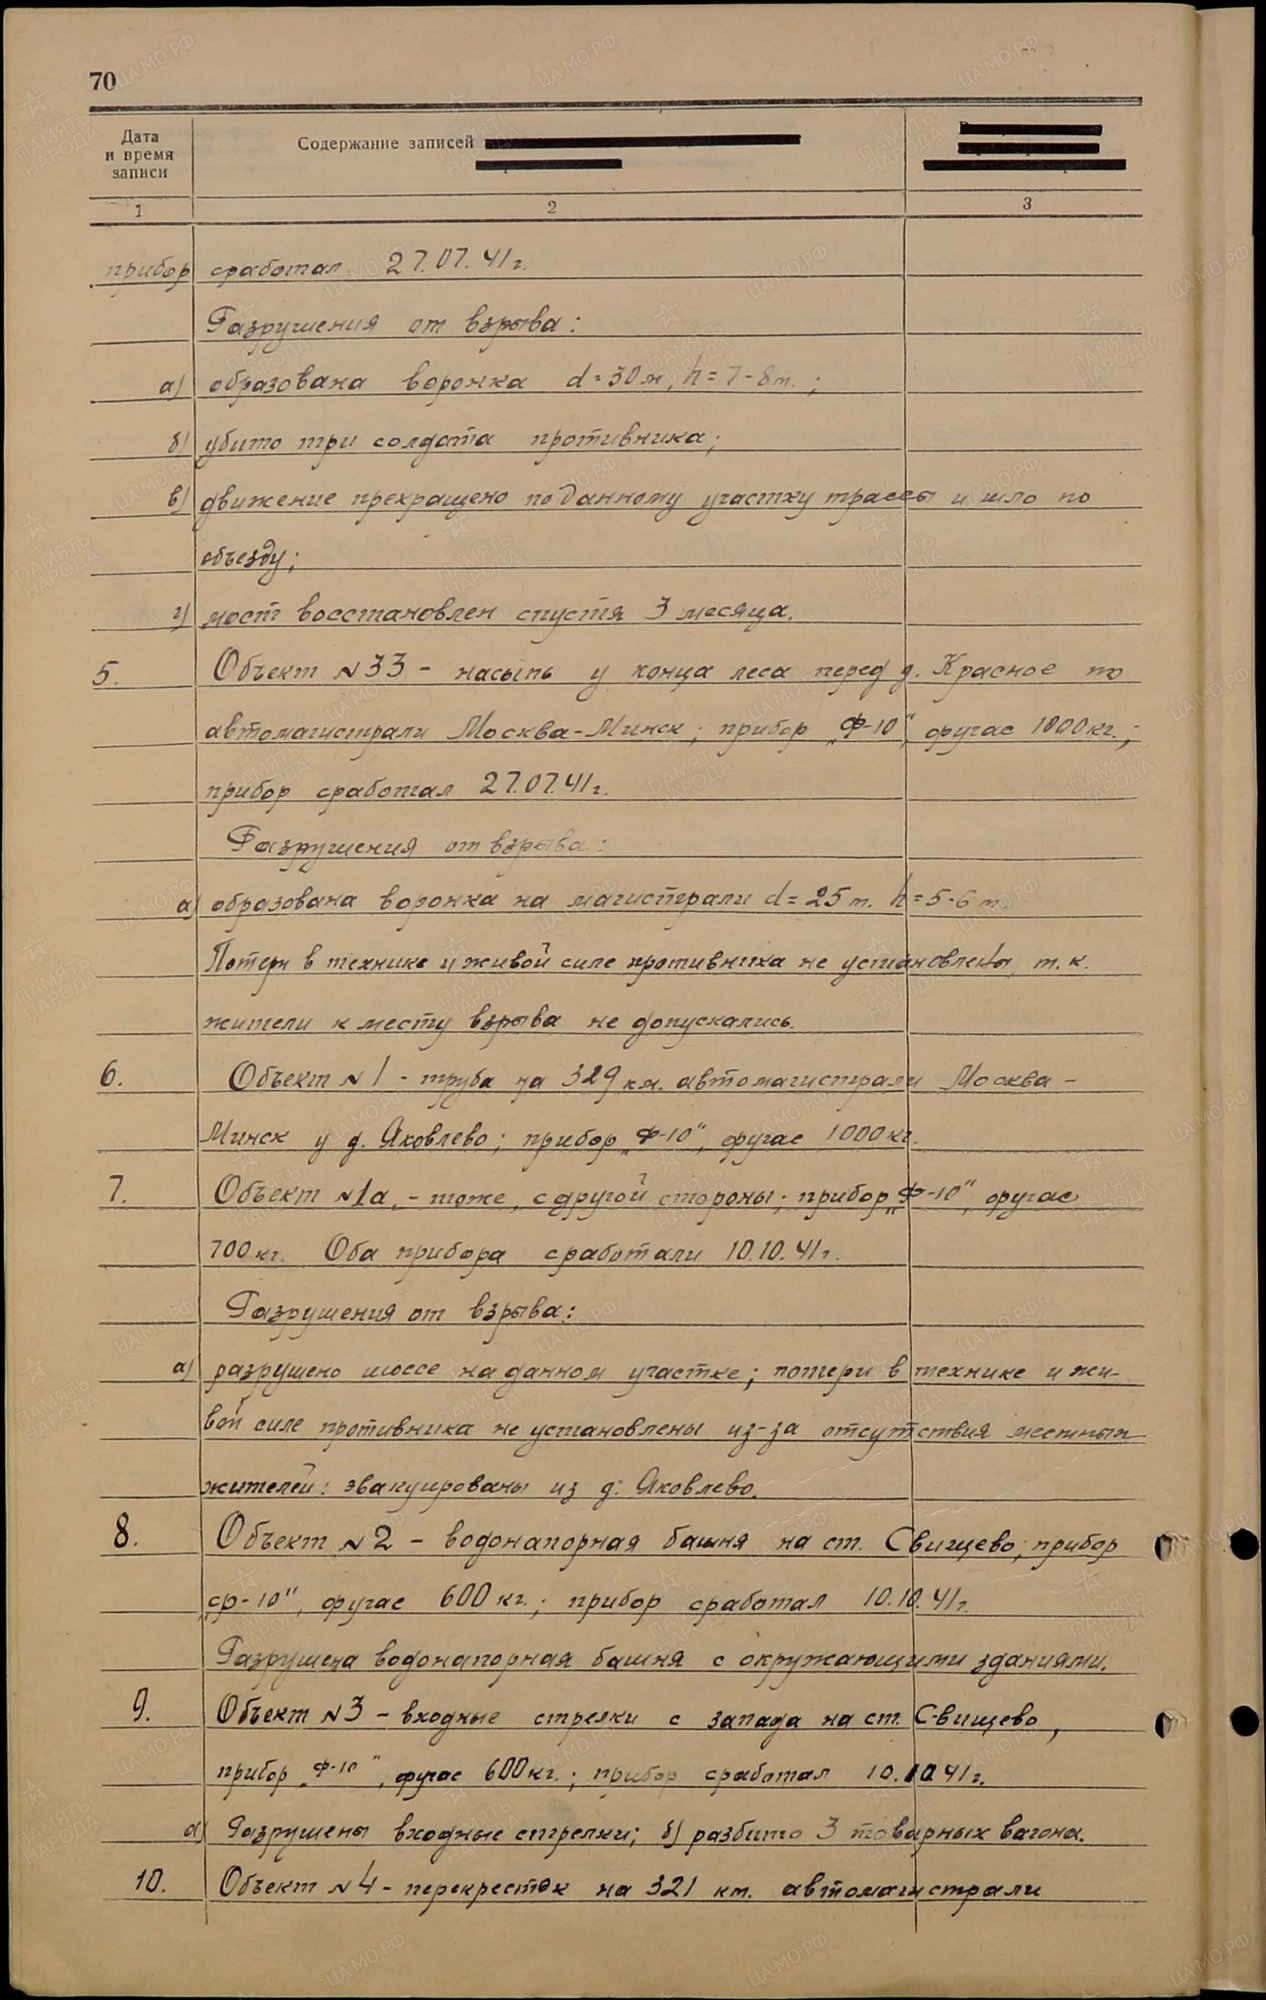 70
Дата
и время
записи
Содержание записей
1
2
3
прибор сработал 27.07.41г.
Разрушения от взрыва:
а) образована воронка d=30м, h=7-8m.;
б) убито три солдата противника;
в) движение прекращено по данному участку трассы и шло по
объезду;
г) мост восстановлен спустя 3 месяца.
5. Объект №33 - насыпь у конца леса перед д. Красное по
автомагистрали Москва-Минск; прибор „Ф-10", фугас 1000кг.;
прибор сработал 27.07.41г.
Разрушения от взрыва:
а) образована воронка на магистрали d=25m. h=5-6m.
Потери в технике и живой силе противника не установлены, т.к.
жители к месту взрыва не допускались.
6. Объект №1 - труба на 329 км. автомагистрали Москва-
Минск у д. Яковлево; прибор „Ф-10", фугас 1000кг.
7. Объект №1а, - тоже, с другой стороны; прибор „Ф-10", фугас
700кг. Оба прибора сработали 10.10.41г.
Разрушения от взрыва:
а) разрушено шоссе на данном участке; потери в технике и жи-
вой силе противника не установлены из-за отсутствия местных
жителей: эвакуированы из д. Яковлево.
8. Объект №2 - водонапорная башня на ст. Свищево; прибор
„ср-10", фугас 600кг.; прибор сработал 10.10.41г.
Разрушена водонапорная башня с окружающими зданиями.
9. Объект №3 - входные стрелки с запада на ст. Свищево,
прибор „Ф-10", фугас 600кг.; прибор сработал 10.10.41г.
а) Разрушены входные стрелки; б) разбито 3 товарных вагона.
10. Объект №4 - перекресток на 321 км. автомагистрали